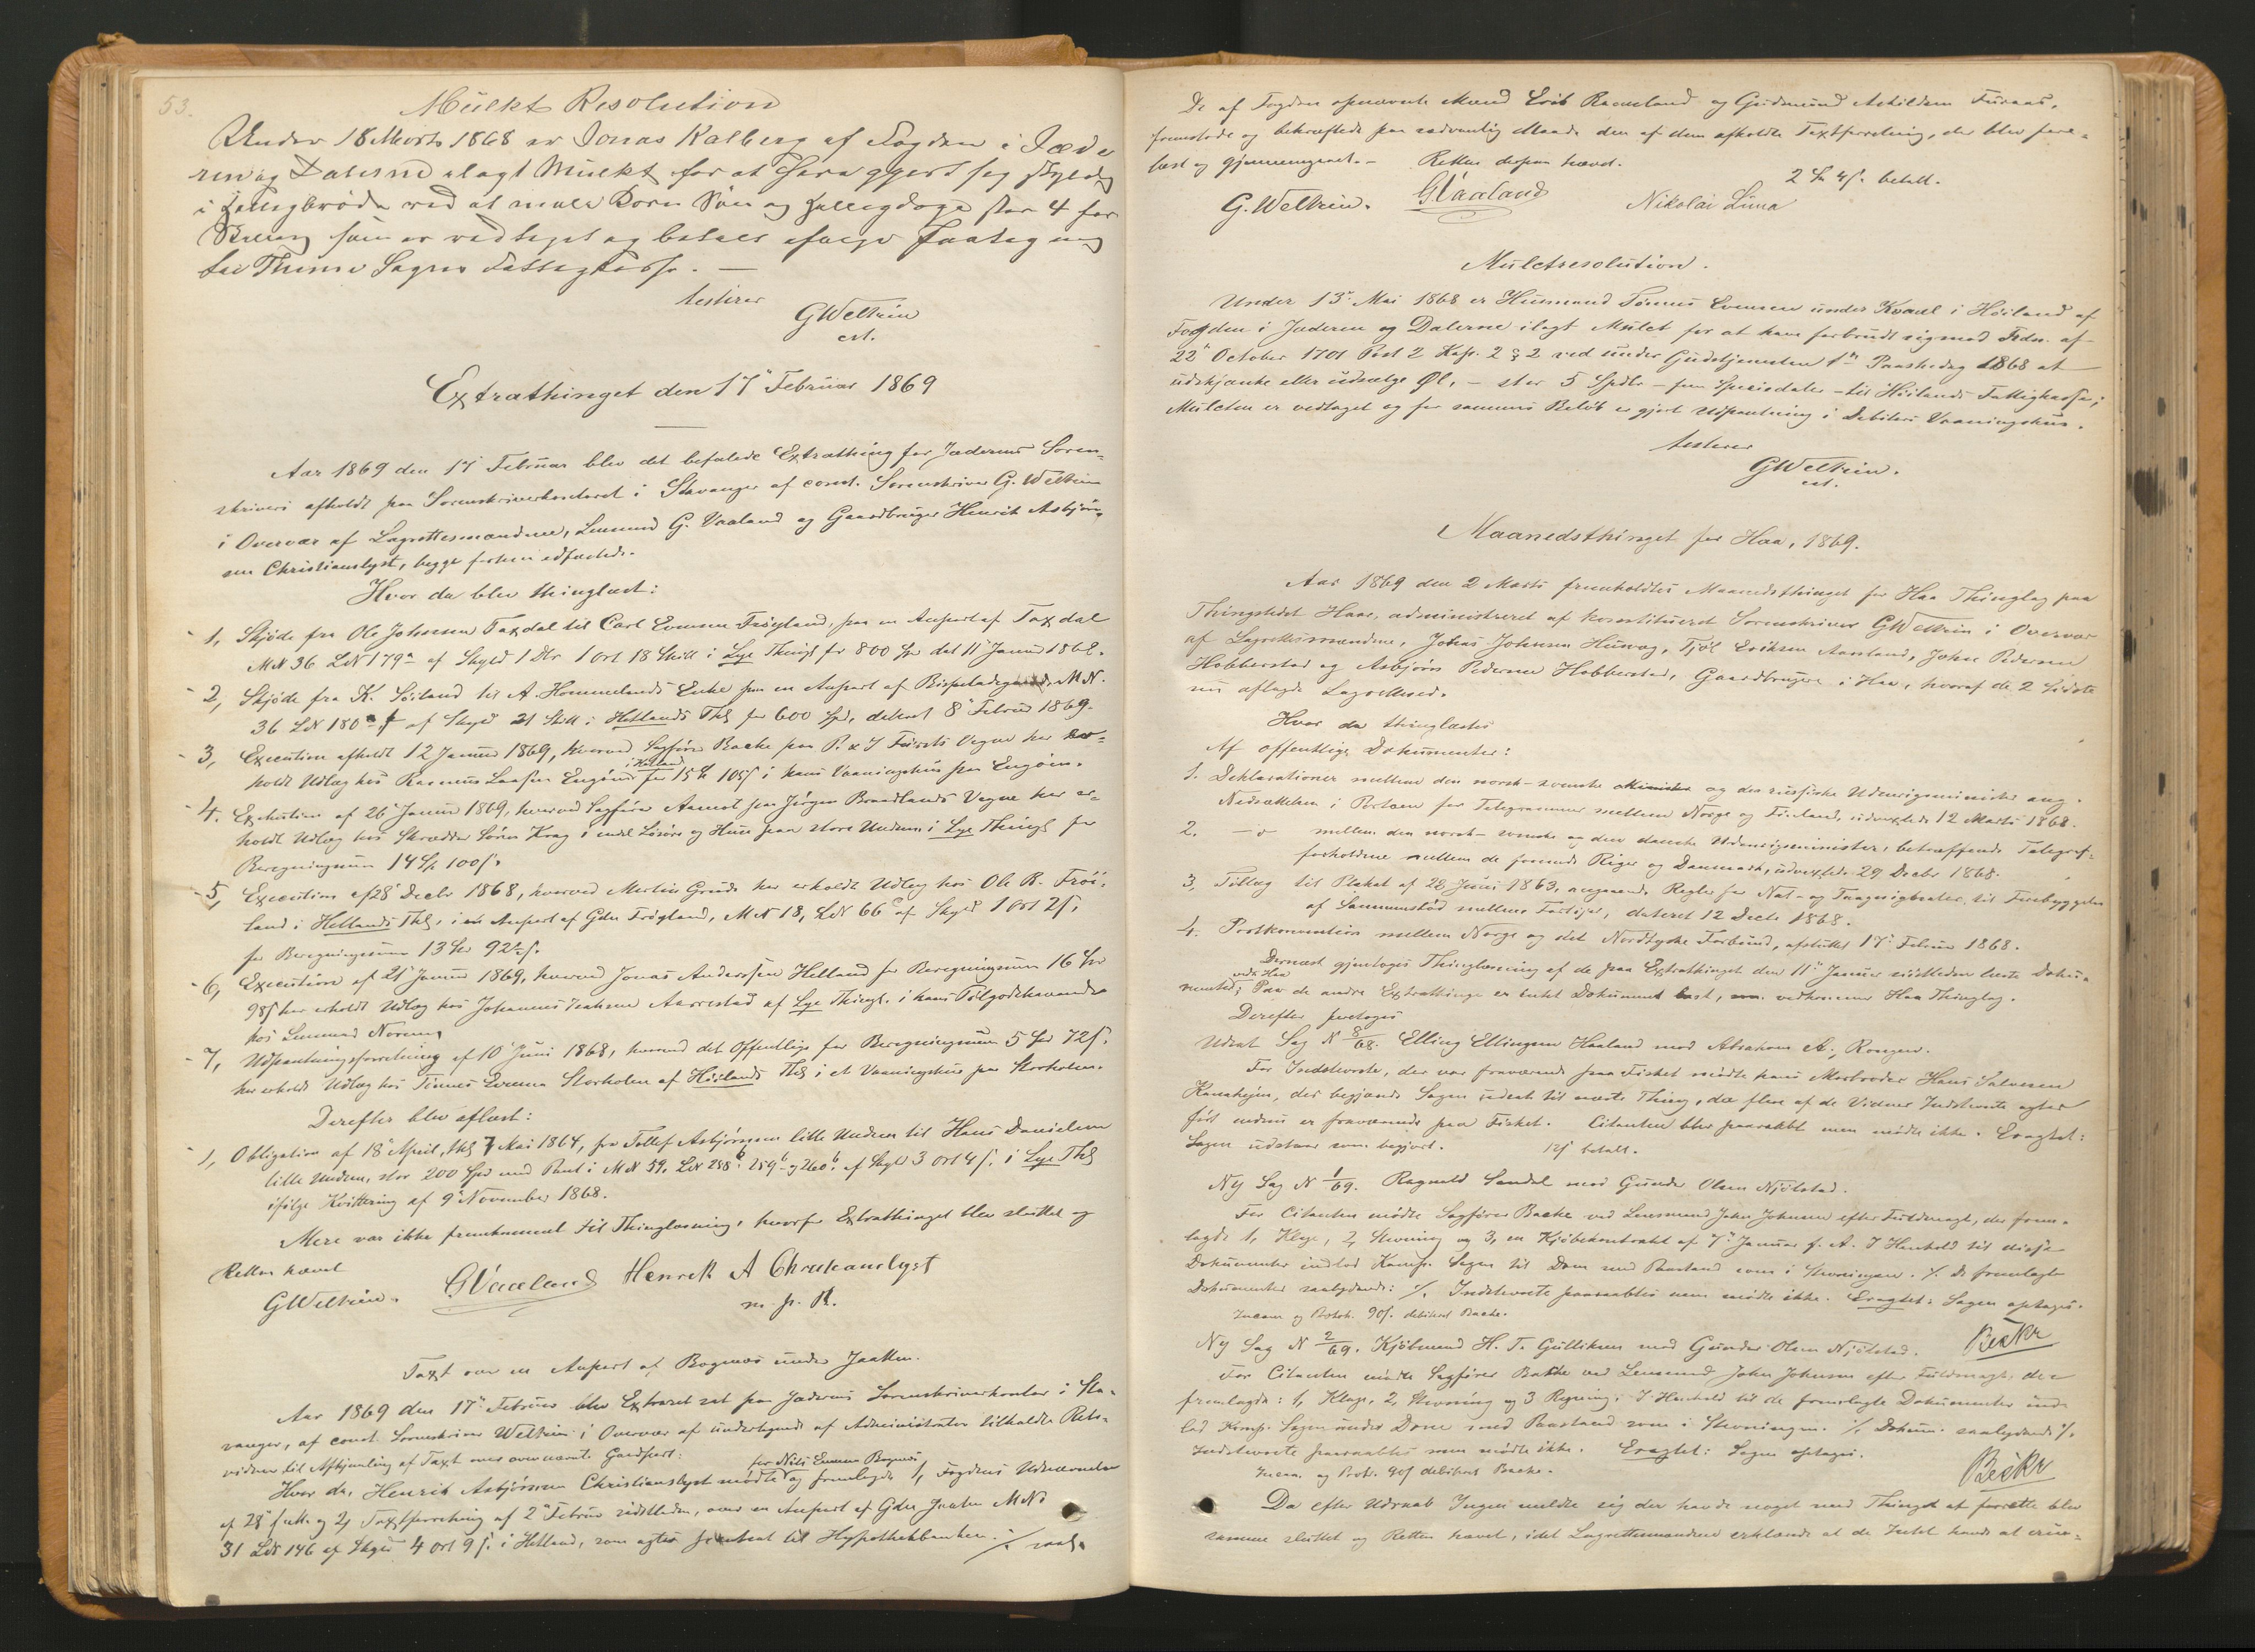 53.
Mulkt Resolution
Under 18 Marts 1868 er Jonas Kalberg af Fogden i Jæde
ren og Dalerne ilagt Mulkt for at have gjort sig skyldig
i Helligbrøde ved at male Korn Søn og Helligdage stor 4 for
som er vedtaget og betalt ifølge
til Thime Sogns Fattigkasse. —
testerer
GWeltzin
cst.
Extrathinget den 17 Februar 1869
Aar 1869 den 17 Februar blev det befalede Extrathing for Jæderens Soren-
skriveri afholdt paa Sorenskriverkontoret i Stavanger af const. Sorenskriver G. Weltzin
i Overvær af Lagrettesmændene, Lensmand G. Vaaland og Gaardbruger Henrik Asbjørn-
sen Christianslyst, begge forhen edfæstede.
Hvor da blev thinglæst:
1, Skjøde fra Ole Johnsen Taxdal til Carl Evensen Frøyland, paa en Anpart af Taxdal
MN 36 LN 179a af Skyld 1 Dlr 1 Ort 18 Skill i Lye Thingl for 800 Spd dat 11 Januar 1868.
2, Skjøde fra K. Søiland til A. Hommelands Enke paa en Anpart af Bispeladegaard, MN.
36 LN 180 af Skyld 21 Skill i Hetlands Thl for 600 Spd, dateret 8 Februar 1869.
3, Execution afholdt 12 Januar 1869, hvorved Sagfører Backe paa P. & I Vegne har er-
holdt Udlæg hos Rasmus Larsen Engøen i Hetland for 15 Sp 105 ß i hans Vaaningshus paa Engøen.
4. Exekution af 26 Januar 1869, hvorved Sagfører Aamot paa Jørgen Braadlands Vegne har er-
holdt Udlæg hos Skrædder Søren Krag i endel Løsøre og Huus paa store Undem i Lye Thingl for
Beregningssum 14 Sp 100 ß.
5, Execution af 28 Decbr 1868, hvorved Martin Grude har erholdt Udlæg hos Ole B. Frøi-
land i Hetlands Thl, i en Anpart af Gdn Frøyland, MN 18, LN 66 af Skyld 1 Ort 2 ß,
for Beregningssum 13 Spd 92½ ß.
6, Execution af 21 Januar 1869, hvorved Jonas Anderssen Helland for Beregningssum 16 Spd
98 ß har erholdt Udlæg hos Johannes Isaksen Aarrestad af Lye Thingl. i hans Tilgodehavende
hos Lensmand Noreng
7, Udpantningsforretning af 10 Juni 1868, hvorved det Offentlige for Beregningssum 5 Spd 72 ß.
har erholdt Udlæg hos Tønnes Evensen Storholen af Høilands Thl i et Vaaningshus paa Storholen.
Derefter blev aflæst:
1, Obligation af 18 April, thl 7 Mai 1864, fra Tollef Asbjørnsen lille Undem til Hans Danielsen
lille Undem, stor 200 Spd med Pant i MN 59, LN 258b 259b og 260b af Skyld 3 Ort 4 ß. i Lye Thl
ifølge Kvittering af 9 November 1868.
Mere var ikke fremkommet til Thinglæsning, hvorfor Extrathinget blev sluttet og
Retten hævet
GWeltzin. GVaaland Henrik A Christianslyst
m. p. P.
Taxt over en Anpart af Bognæs under Jaatten.
Aar 1869 den 17 Februar blev Extraret sat paa Jæderens Sorenskriverkontor i Sta-
vanger, af const. Sorenskriver Weltzin i Overvær af undertegnede af Administrator tilkaldte Rets-
vidner til Afhjemling af Taxt over ovennævnte Gaardpart:
Hvor da, Henrik Asbjørnsen Christianslyst mødte for Nils Bognæs og fremlagde 1, Fogdens Udnævnelse
af 28 f. M. og 2, Taxtforretning af 2 Februar sidstleden, over en Anpart af Gdn Jaaten MN
31 LN 146 af Skyld 4 Ort 9 ß. i Hetland, som agtes pantsat til Hypothekbanken. ./. saal.
De af Fogden opnævnte Mænd Erik Raaeland og Gudmund Askildsen Furaas,
fremstode og bekræftede paa sædvanlig Maade den af dem afholdte Taxtforretning, der blev fore-
læst og gjennemgaaet. — Retten derpaa hævet.
2 Sp 4 ß. betalt.
G. Weltzin. GVaaland Nikolai Lima
Mulctresolution.
Under 13 Mai 1868 er Husmand Tønnes Evensen under Kvaal i Høiland af
Fogden i Jæderen og Dalerne ilagt Mulct for at have forbrudt sig mod Frdn. af
22 October 1701 Post 2 Kap. 2 § 2 ved under Gudstjenesten 1ste Paaskedag 1868 at
udskjænke eller udsælge Øl, — stor 5 Spdlr — fem Speciedaler — til Høilands Fattigkasse;
Mulcten er vedtaget og for sammes Beløb er gjort Udpantning i Debitors Vaaningshus.
testerer
GWeltzin.
cst.
Maanedsthinget for Haa, 1869.
Aar 1869 den 2 Marts fremholdtes Maanedsthinget for Haa Thinglag paa
Thingstedet Haar, administreret af konstitueret Sorenskriver GWeltzin i Overvær
af Lagrettesmændene, Johans Johnsen Husvog, Tjøl Eriksen Aanland, John Pedersen
Hobberstad og Asbjørn Pedersen Hobberstad, Gaardbrugere i Haa, hvoraf de 2 Sidste
nu aflagde Lagrettesed.
Hvor da thinglæstes
Af offentlige Dokumenter:
1. Deklarationer mellem den norsk-svenske Minister og den russiske Udenrigsminister ang.
Nedsættelsen i Portoen for Telegrammer mellem Norge og Finland, udvexlede 12 Marts 1868.
2. — " — mellem den norsk-svenske og den danske Udenrigsminister, betræffende Telegraf-
forholdene mellem de forenede Riger og Danmark, udvexlede 29 Decbr 1868.
3, Tillæg til Plakat af 28 Juni 1863, angaaende Regler for Nat- og Taagesignaler, til Forebyggelse
af Sammenstød mellem Fartøjer, dateret 12 Decbr 1868.
4. Postkonvention mellem Norge og det Nordtyske Forbund, afsluttet 17 Februar 1868.
Dernæst gjentoges Thinglæsning af de paa Extrathinget den 11 Januar sidstleden læste Doku-
menter vedk Haa; Paa de andre Extrathinge er intet Dokument læst, vedkommer Haa Thinglag.
Derefter foretoges
Udsat Sag N 8/68. Elling Ellingsen Haaland mod Abraham A. Rongen.
For Indstevnte, der var fraværende paa Fisket mødte hans Morbroder Hans Salvesen
Kanahejen, der begjærede Sagen udsat til næste Thing, da flere af de Vidner Indstevnte agter
ført endnu er fraværende paa Fisket. Citanten blev paaraabt men mødte ikke. Eragtet:
Sagen udstaar som begjært. 12 ß betalt.
Ny Sag N 1/69. Ragnald Sandal mod Gunder Olsen Njølstad.
For Citanten mødte Sagfører Backe ved Lensmand John Johnsen efter Fuldmagt, der frem-
lagde 1, Klage, 2, Stevning og 3, en Kjøbekontrakt af 7 Januar f. A. I Henhold til disse
Dokumenter indlod Komp. Sagen til Dom med Paastand som i Stevningen. ./. De fremlagte
Dokumenter saalydende: ./. Indstevnte paaraabtes men mødte ikke. Eragtet: Sagen optages.
Incam. og Protok. 90 ß. debiteret Backe.
Ny Sag N 2/69. Kjøbmand H. T. Gulliksen mod Gunder Olsen Njølstad.
For Citanten mødte Sagfører Backe ved Lensmand John Johnsen efter Fuldmagt, der
fremlagde: 1, Klage, 2, Stevning og 3 Regning. I Henhold til de fremlagte Dokumenter ind-
lod Komp. Sagen under Dom med Paastand som i Stevningen. ./. Dokum. saalydende ./.
Indstevnte paaraabtes men mødte ikke. Eragtet: Sagen optages.
Incam. og Prot. 90 ß debiteret Backe.
Da efter Udraab Ingen meldte sig der havde noget med Thinget at forrette blev
samme sluttet og Retten hævet, idet Lagrettesmændene erklærede at de Intet havde at erin-